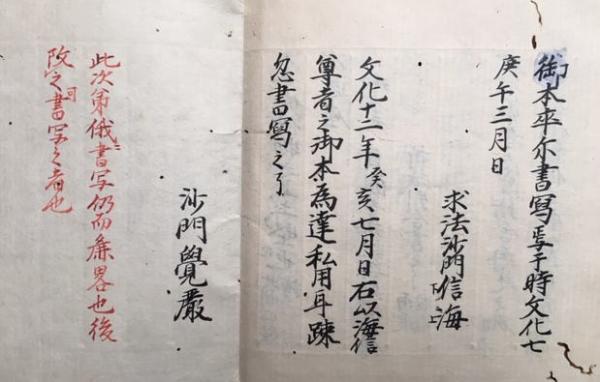 御本卒尓書寫焉于時文化七
庚午三月日
求法沙門信海
文化十二年癸亥七月日右以海信
尊者之御本為達私用耳疎
忽書寫之了
沙門覺嚴
此次第俄書写仍而廉畧也後
改定書写之者也